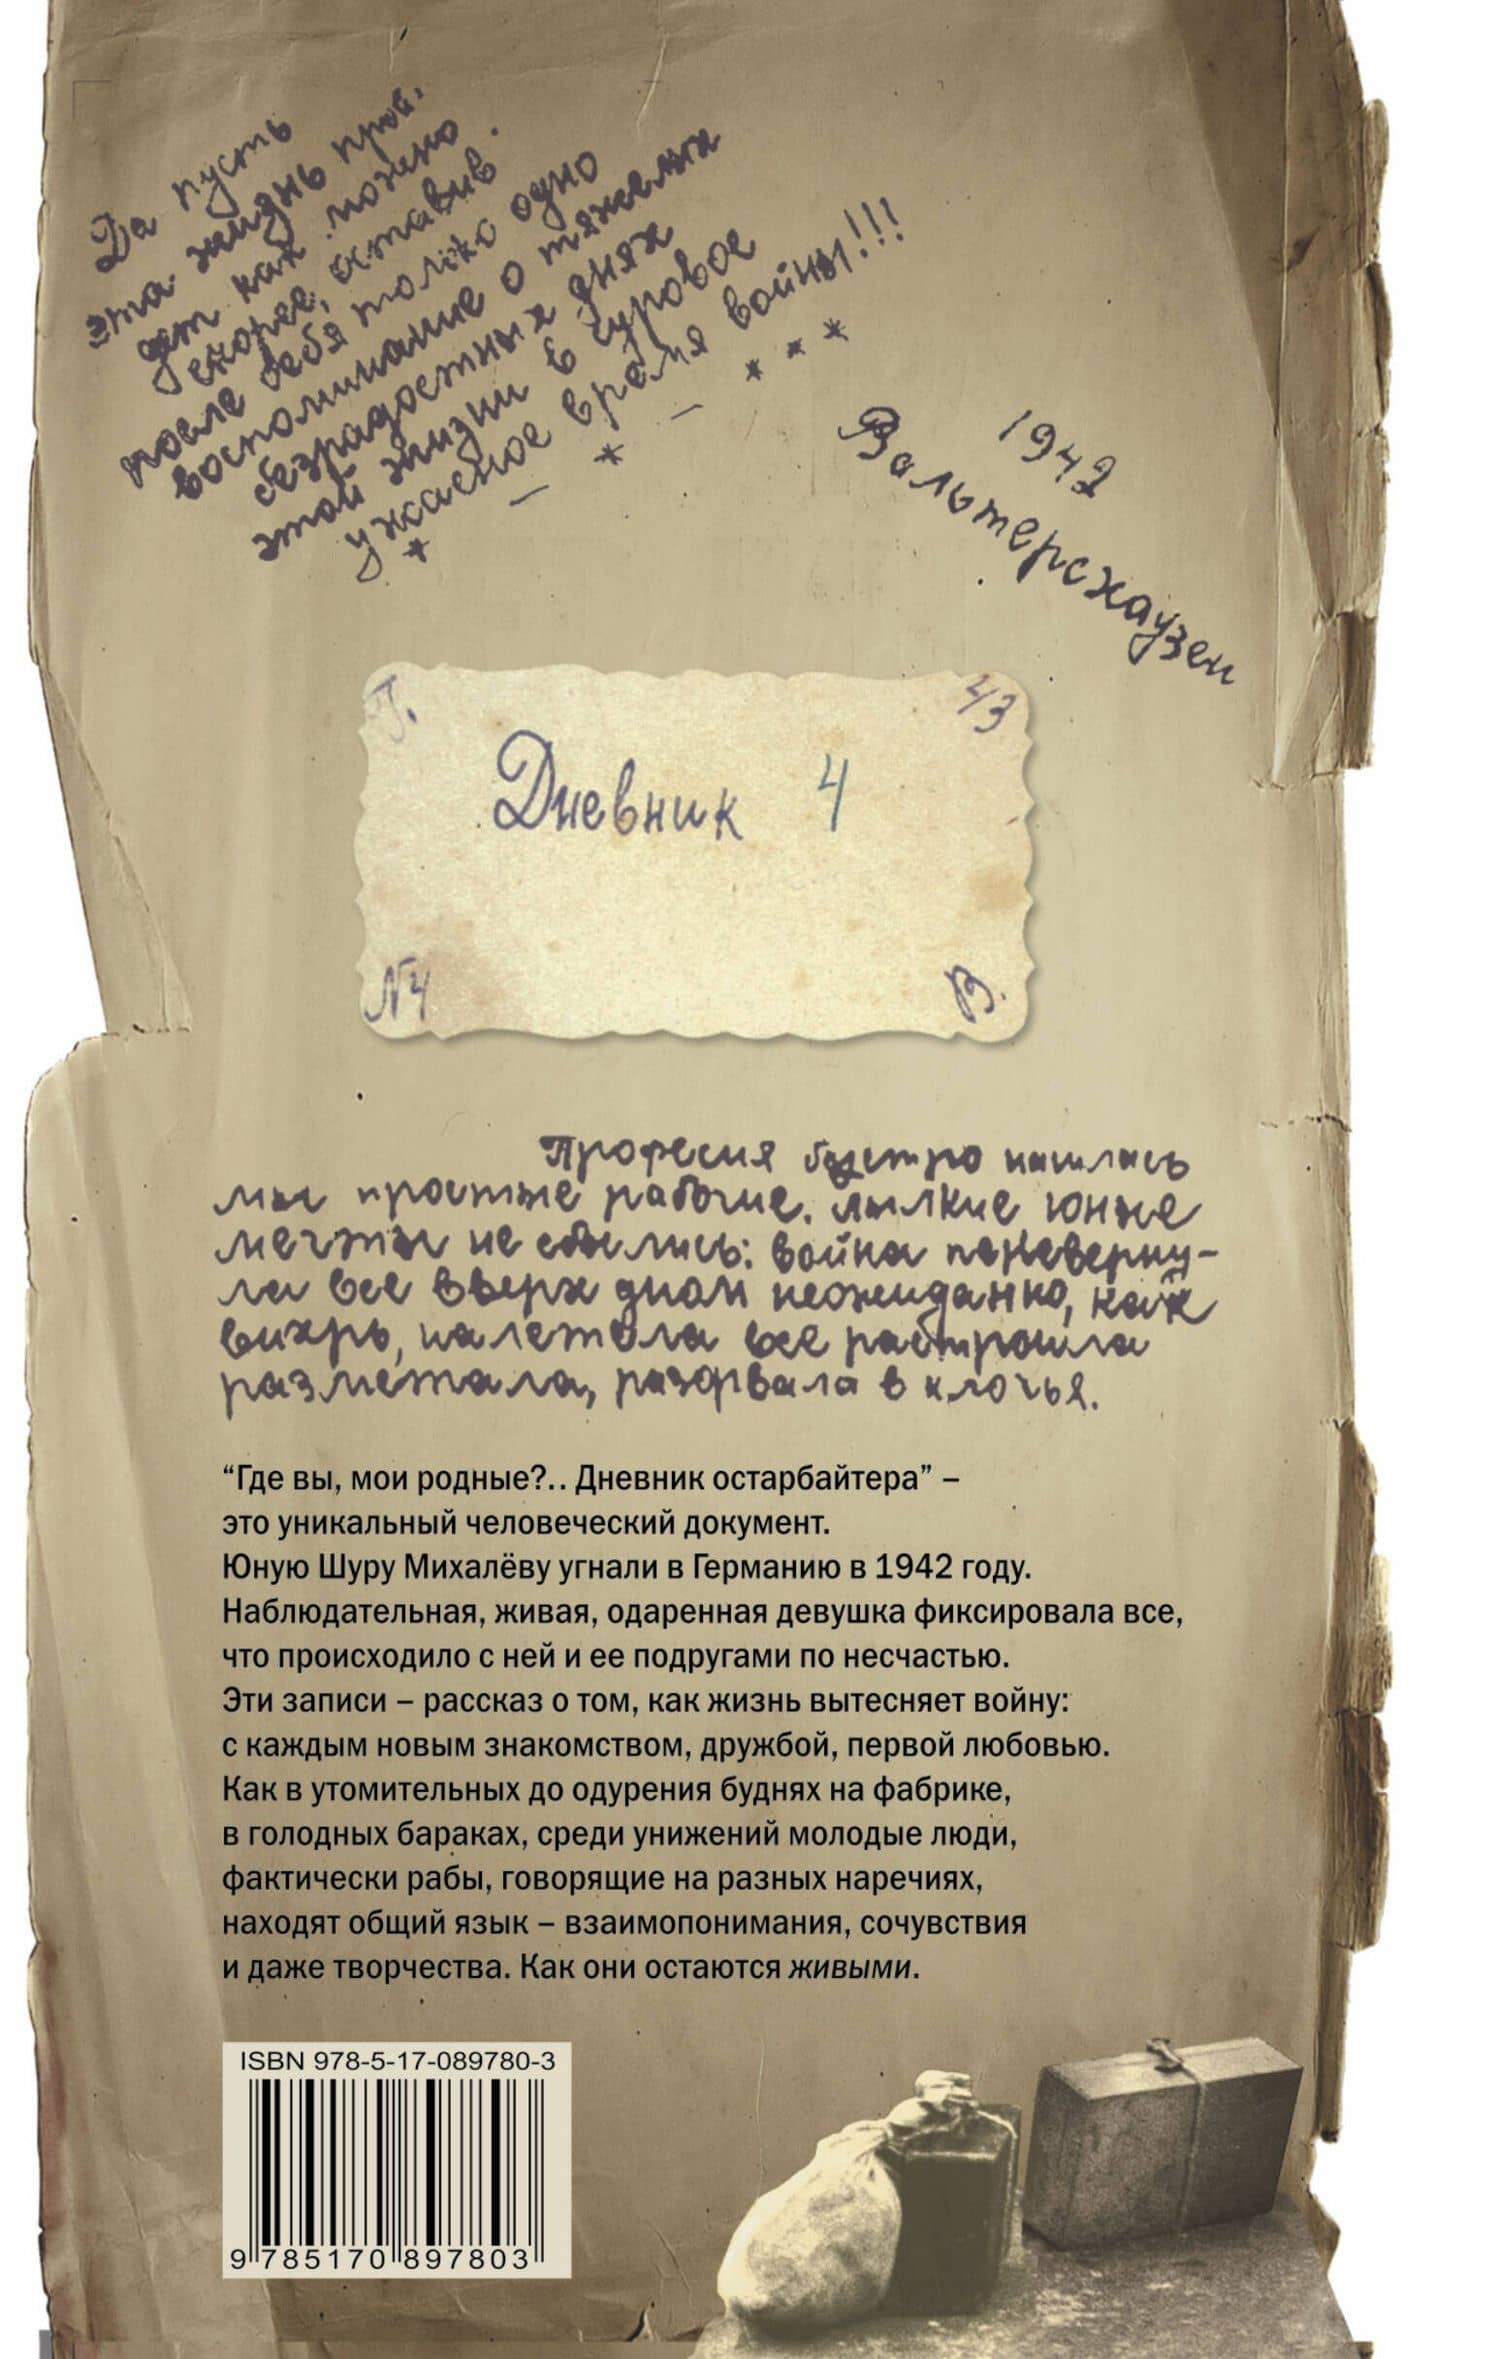 Да пусть
эта жизнь прой.
дет как можно
скорее, оставив
после себя только одно
воспоминание о тяжелых
безрадостных днях
этой жизни в суровое
ужасное время войны!!!
* — * — * * *
1942
Вальтерсхаузен
Г. 43
Дневник 4
N4 В.
Професия быстро нашлась
мы простые рабочие. Пылкие юные
мечты не сбылись: война перевернy-
ла все вверх дном неожиданно, как
вихрь, налетела все растрошла
разметала, разорвала в клочья.
“Где вы, мои родные?.. Дневник остарбайтера” –
это уникальный человеческий документ.
Юную Шуру Михалёву угнали в Германию в 1942 году.
Наблюдательная, живая, одаренная девушка фиксировала все,
что происходило с ней и ее подругами по несчастью.
Эти записи – рассказ о том, как жизнь вытесняет войну:
с каждым новым знакомством, дружбой, первой любовью.
Как в утомительных до одурения буднях на фабрике,
в голодных бараках, среди унижений молодые люди,
фактически рабы, говорящие на разных наречиях,
находят общий язык – взаимопонимания, сочувствия
и даже творчества. Как они остаются живыми.
ISBN 978-5-17-089780-3
9 785170 897803